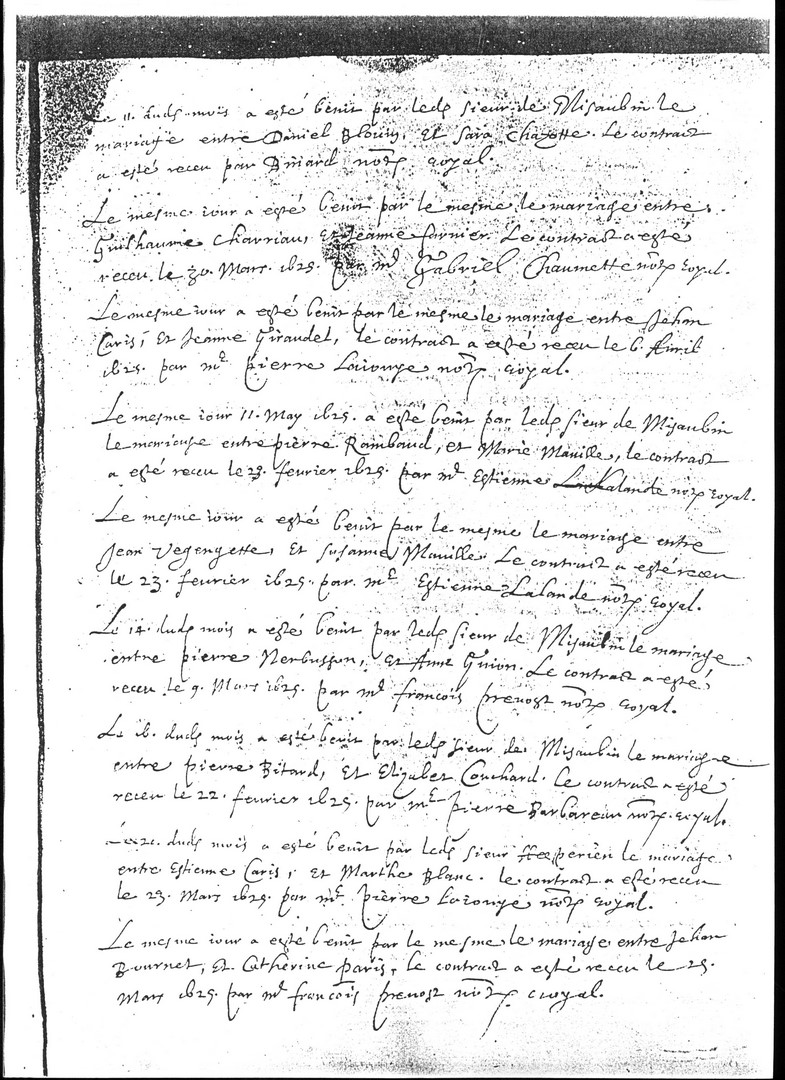 Le 11. duds mois a esté benit par ledp sieur de Misaubin le
mariage entre Daniel Blouin, Et Sara Le contract
a esté receu par notre royal.
Le mesme iour a esté benit par le mesme le mariage entre
Guilhaume Charriau, Et Jeanne fornier. Le contract a esté
receu le 30. Mars. 1625. par Me Gabriel Chaumette notre royal.
Le mesme iour a esté benit par le mesme le mariage entre Jehan
Caris, Et Jeanne Giraudet, le contract a esté receu le 6. Auril
1625. par me pierre notre royal.
Le mesme iour 11. May 1625. a esté benit par ledp sieur de Misaubin
le mariage entre pierre Raimbaud, et Marie Mauille, le contract
a esté receu le 23. feurier 1625. par me Estienne Lalande notre royal.
Le mesme iour a esté benit par le mesme le mariage entre
Jean Et Susanne Mauille. Le contract a esté receu
le 23. feurier 1625. par me Estienne Lalande notre royal.
Le 14. duds mois a esté benit par ledp sieur de Misaubin le mariage
entre pierre Et Anne Guion. Le contract a esté
receu le 9. Mars 1625. par me francois preuost notre royal.
Le 16. duds mois a esté benit par ledp sieur de Misaubin le mariage
entre pierre Bitard, Et Elizabet Couchard. Le contract a esté
receu le 22. feurier 1625. par me pierre Barbareau notre royal.
Le 21. duds mois a esté benit par ledp sieur le mariage
entre Estienne Caris, Et Marthe Blanc. le contract a esté receu
le 23. Mars 1625. par me pierre notre royal.
Le mesme iour a esté benit par le mesme le mariage entre Jehan
Bournet, Et Catherine paris, le contract a esté receu le 25.
Mars 1625. par me francois preuost notre royal.